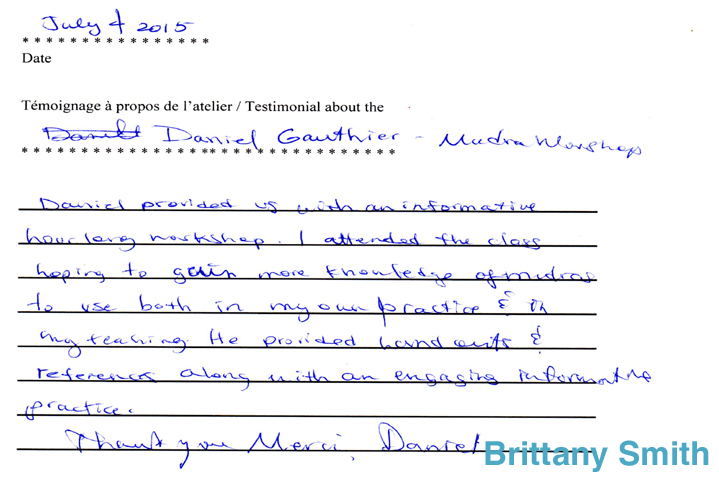 July 4 2015
* * * * * * * * * * * * * * * *
Date
Témoignage à propos de l'atelier / Testimonial about the
Daniel Gauthier - Mudra Worshop
* * * * * * * * * * * * * * * * * * * * * * * * * * * * * * * *
Daniel provided us with an informative
hour long workshop. I attended the class
hoping to gain more knowledge of mudras
to use both in my own practice & in
my teaching. He provided handouts &
references along with an engaging informative
practice.
Thank you Merci, Daniel
Brittany Smith